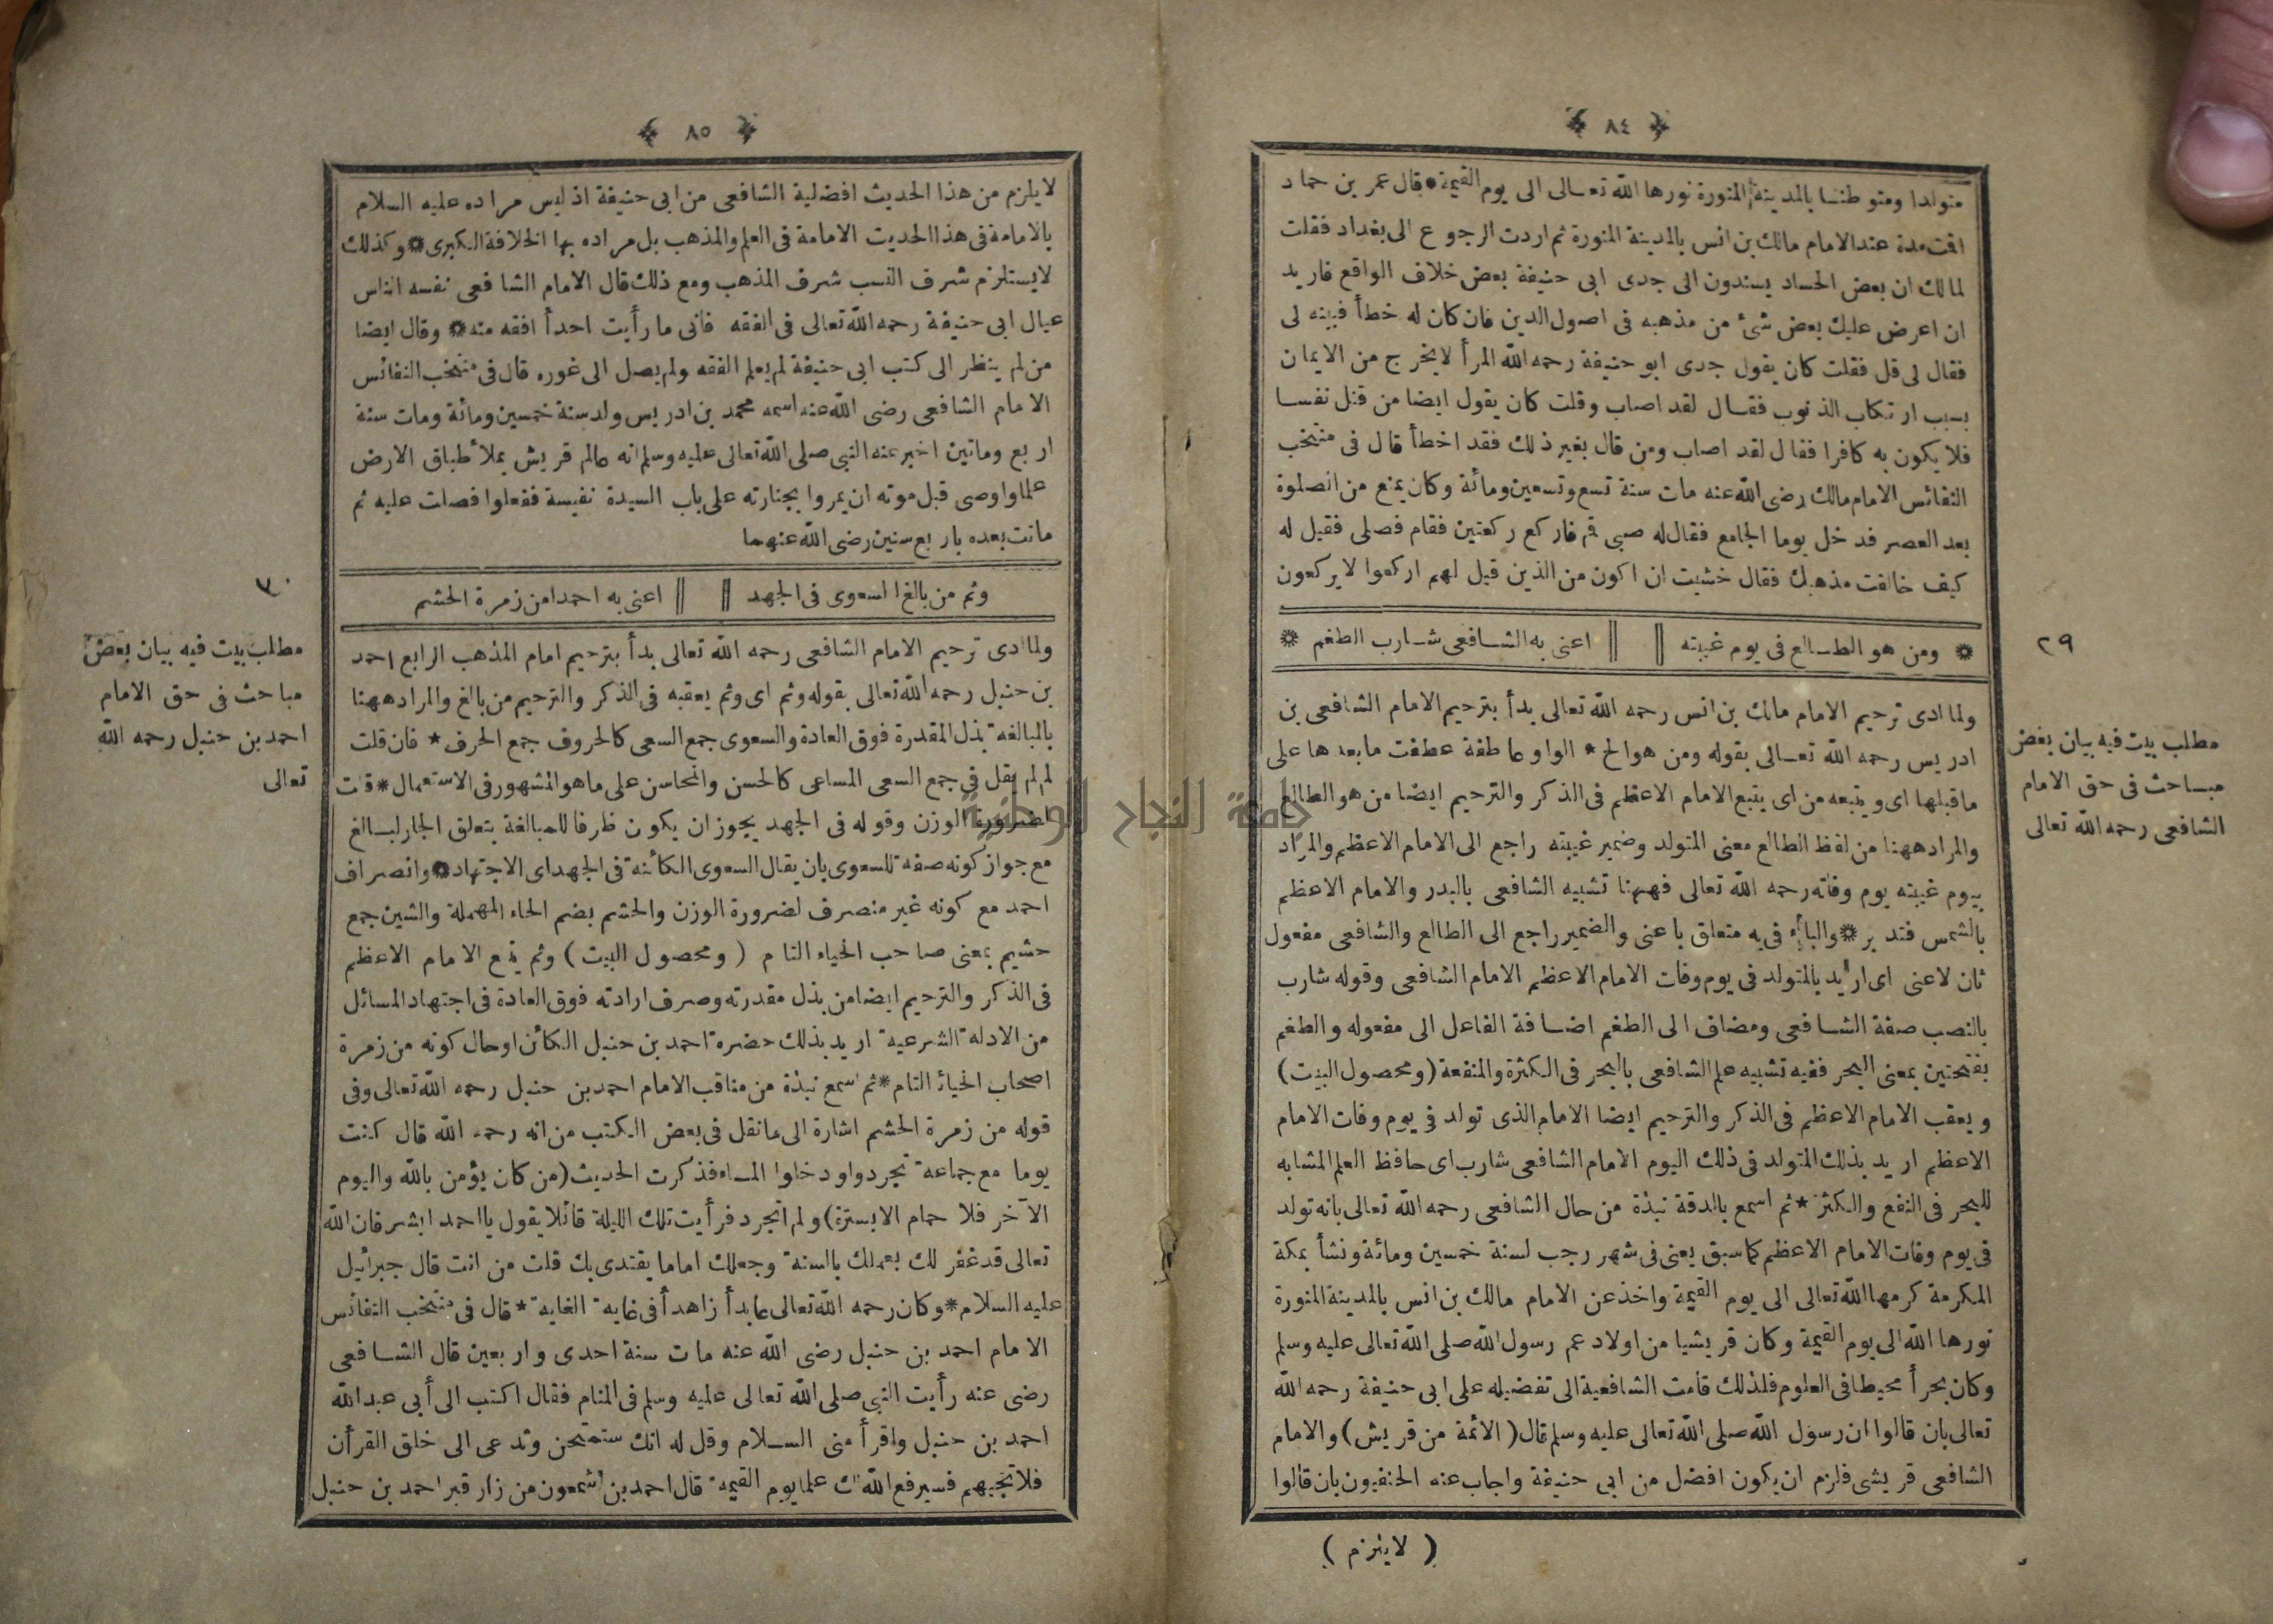 ﴿ ٨٤ ﴾
متولدا ومتوطنا بالمدينة المنورة نورها الله تعالى الى يوم القيمة * قال عمر بن حماد
اقت مدة عند الامام مالك بن انس بالمدينة المنورة ثم اردت الرجوع الى بغداد فقلت
لمالك ان بعض الحساد يسندون الى جدى ابى حنيفة بعض خلاف الواقع فاريد
ان اعرض عليك بعض شئ من مذهبه فى اصول الدين فان كان له خطأ فبينه لى
فقال لى قل فقلت كان يقول جدى ابو حنيفة رحمه الله المرأ لا يخرج من الايمان
بسبب ارتكاب الذنوب فقال لقد اصاب وقلت كان يقول ايضا من قتل نفسا
فلا يكون به كافرا فقال لقد اصاب ومن قال بغير ذلك فقد اخطأ قال فى منتخب
النفائس الامام مالك رضى الله عنه مات سنة تسع وتسعين ومائة وكان يمنع من الصلوة
بعد العصر فدخل يوما الجامع فقال له صبى قم فاركع ركعتين فقام فصلى فقيل له
كيف خالفت مذهبك فقال خشيت ان اكون من الذين قيل لهم اركعوا لا يركعون
* ومن هو الطالع فى يوم غيبته ‖ ‖ اعنى به الشافعى شارب الطغم *
٢٩
ولما ادى ترحيم الامام مالك بن انس رحمه الله تعالى بدأ بترحيم الامام الشافعى بن
ادريس رحمه الله تعالى بقوله ومن هو الخ * الواو عاطفة عطفت مابعدها على
ماقبلها اى ويتبعه من اى يتبع الامام الاعظم فى الذكر والترحيم ايضا من هو الطالع
والمراد ههنا من لفظ الطالع معنى المتولد وضمير غيبته راجع الى الامام الاعظم والمراد
بيوم غيبته يوم وفاته رحمه الله تعالى فههنا تشبيه الشافعى بالبدر والامام الاعظم
بالشمس فتدبر * والباء فى به متعلق باعنى والضمير راجع الى الطالع والشافعى مفعول
ثان لاعنى اى اريد بالمتولد فى يوم وفات الامام الاعظم الامام الشافعى وقوله شارب
بالنصب صفة الشافعى ومضاف الى الطغم اضافة الفاعل الى مفعوله والطغم
بفتحتين بمعنى البحر ففيه تشبيه علم الشافعى بالبحر فى الكثرة والمنفعة (ومحصول البيت)
ويعقب الامام الاعظم فى الذكر والترحيم ايضا الامام الذى تولد فى يوم وفات الامام
الاعظم اريد بذلك المتولد فى ذلك اليوم الامام الشافعى شارب اى حافظ العلم المشابه
للبحر فى النفع والكثر * ثم اسمع بالدقة نبذة من حال الشافعى رحمه الله تعالى بانه تولد
فى يوم وفات الامام الاعظم كما سبق يعنى فى شهر رجب لسنة خمسين ومائة ونشأ بمكة
المكرمة كرمها الله تعالى الى يوم القيمة واخذ عن الامام مالك بن انس بالمدينة المنورة
نورها الله الى يوم القيمة وكان قريشيا من اولاد عم رسول الله صلى الله تعالى عليه وسلم
وكان بحرأ محيطا فى العلوم فلذلك قامت الشافعية الى تفضيله على ابى حنيفة رحمه الله
تعالى بان قالوا ان رسول الله صلى الله تعالى عليه وسلم قال (الائمة من قريش) والامام
الشافعى قريشى فلزم ان يكون افضل من ابى حنيفة واجاب عنه الحنفيون بان قالوا
( لايلزم )
مطلب بيت فيه بيان بعض
مباحث فى حق الامام
الشافعى رحمه الله تعالى
﴿ ٨٥ ﴾
لايلزم من هذا الحديث افضلية الشافعى من ابى حنيفة اذ ليس مراده عليه السلام
بالامامة فى هذا الحديث الامامة فى العلم والمذهب بل مراده بها الخلافة الكبرى * وكذلك
لايستلزم شرف النسب شرف المذهب ومع ذلك قال الامام الشافعى نفسه الناس
عيال ابى حنيفة رحمه الله تعالى فى الفقه فانى ما رأيت احدأ افقه منه * وقال ايضا
من لم ينظر الى كتب ابى حنيفة لم يعلم الفقه ولم يصل الى غوره قال فى منتخب النفائس
الامام الشافعى رضى الله عنه اسمه محمد بن ادريس ولد سنة خمسين ومائة ومات سنة
اربع ومأتين اخبر عنه النبى صلى الله تعالى عليه وسلم انه عالم قريش يملأ طباق الارض
علما واوصى قبل موته ان يمروا بجنازته على باب السيدة نفيسة ففعلوا فصلت عليه ثم
ماتت بعده باربع سنين رضى الله عنهما
وثم من بالغ السعوى فى الجهد ‖ ‖ اعنى به احمدا من زمرة الحشم
٣٠
ولما ادى ترحيم الامام الشافعى رحمه الله تعالى بدأ بترحيم امام المذهب الرابع احمد
بن حنبل رحمه الله تعالى بقوله وثم اى وثم يعقبه فى الذكر والترحيم من بالغ والمراد ههنا
بالمبالغة بذل المقدرة فوق العادة والسعوى جمع السعى كالحروف جمع الحرف * فان قلت
لم لم يقل فى جمع السعى المساعى كالحسن والمحاسن على ماهو المشهور فى الاستعمال * قلت
لضرورة الوزن وقوله فى الجهد يجوز ان يكون ظرفا للمبالغة بتعلق الجار لبالغ
مع جواز كونه صفة للسعوى بان يقال السعوى الكائنة فى الجهد اى الاجتهاد * وانصراف
احمد مع كونه غير منصرف لضرورة الوزن والحشم بضم الحاء المهملة والشين جمع
حشيم بمعنى صاحب الحياء التام (ومحصول البيت) وثم يتبع الامام الاعظم
فى الذكر والترحيم ايضا من بذل مقدرته وصرف ارادته فوق العادة فى اجتهاد المسائل
من الادلة الشرعية اريد بذلك حضرة احمد بن حنبل الكائن او حال كونه من زمرة
اصحاب الحياء التام * ثم اسمع نبذة من مناقب الامام احمد بن حنبل رحمه الله تعالى وفى
قوله من زمرة الحشم اشارة الى ما نقل فى بعض الكتب من انه رحمه الله قال كنت
يوما مع جماعة تجردوا ودخلوا الماء فذكرت الحديث (من كان يؤمن بالله واليوم
الآخر فلا حمام الا بسترة) ولم اتجرد فرأيت تلك الليلة قائلا يقول يا احمد ابشر فان الله
تعالى قد غفر لك بعملك بالسنة وجعلك اماما يقتدى بك قلت من انت قال جبرائيل
عليه السلام * وكان رحمه الله تعالى عابدأ زاهدأ فى غاية الغاية * قال فى منتخب النفائس
الامام احمد بن حنبل رضى الله عنه مات سنة احدى واربعين قال الشافعى
رضى عنه رأيت النبى صلى الله تعالى عليه وسلم فى المنام فقال اكتب الى أبى عبد الله
احمد بن حنبل واقرأ منى السلام وقل له انك ستمتحن وتدعى الى خلق القرأن
فلا تجبهم فسيرفع الله لك علما يوم القيمة قال احمد بن اشمعون من زار قبر احمد بن حنبل
مطلب بيت فيه بيان بعض
مباحث فى حق الامام
احمد بن حنبل رحمه الله
تعالى
جامعة النجاح الوطنية